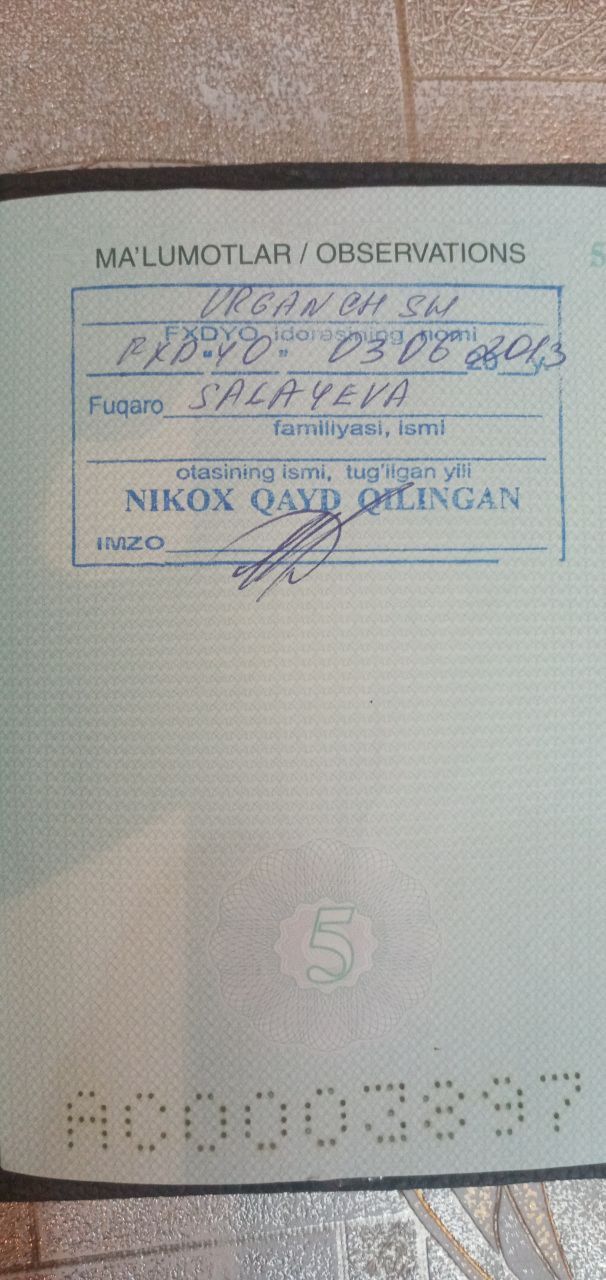 MA'LUMOTLAR / OBSERVATIONS
5
URGANCH SH
FXDYO idorasining nomi
FXDYO " " 03 06 2013
20 y
Fuqaro SALAYEVA
familiyasi, ismi
otasining ismi, tug'ilgan yili
NIKOX QAYD QILINGAN
IMZO
5
AC0003897